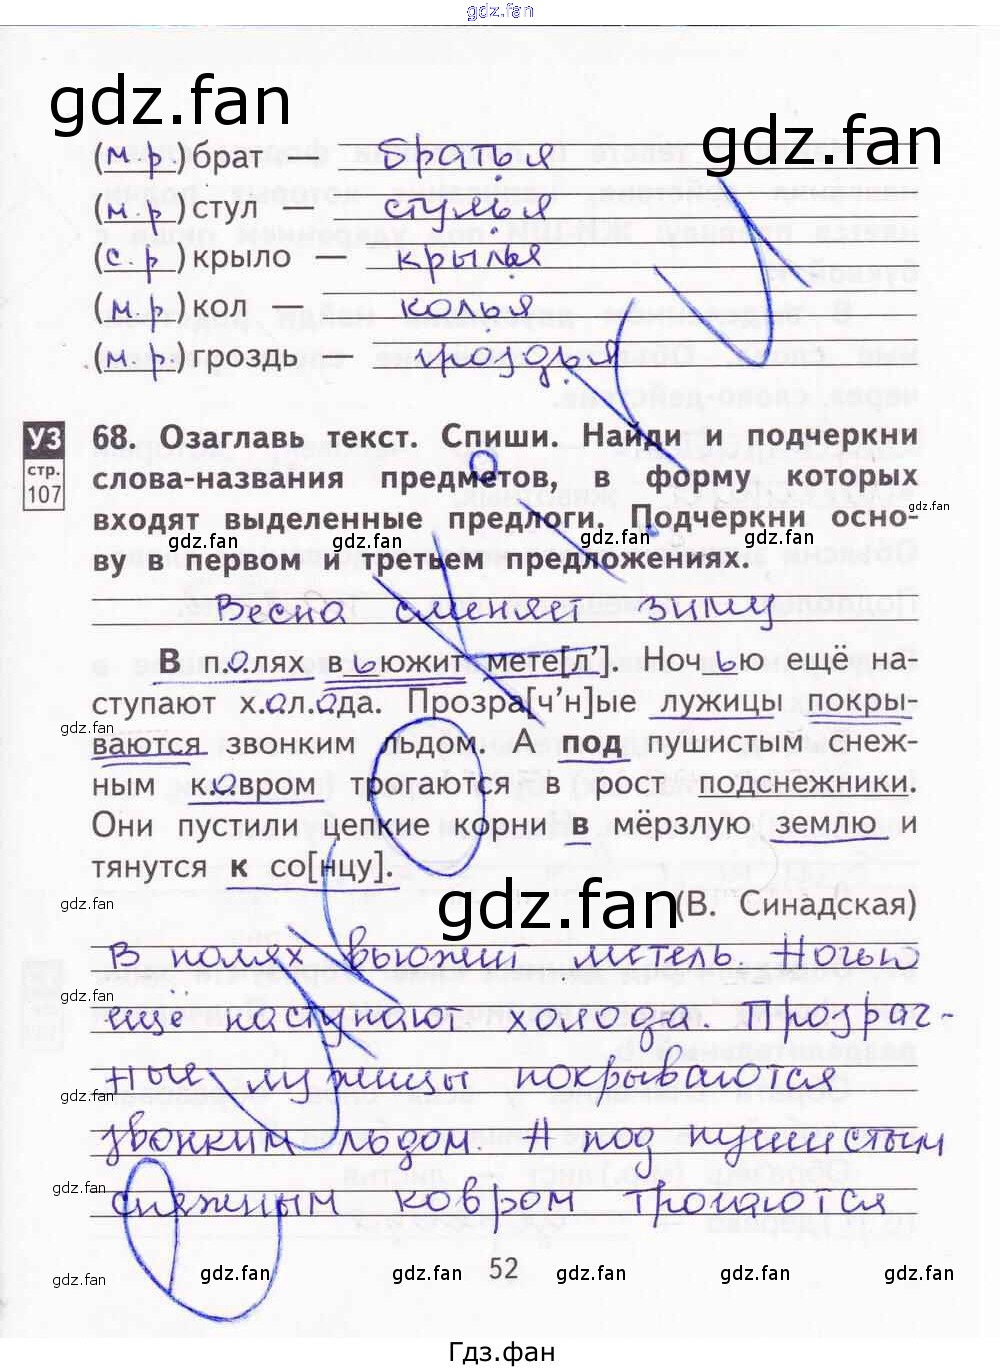 gdz.fan
gdz.fan
gdz.fan
(м.р.) брат — братья
(м.р) стул — стулья
(с.р) крыло — крылья
(м.р.) кол — колья
(м.р.) гроздь — гроздья
УЗ
стр.
107
68. Озаглавь текст. Спиши. Найди и подчеркни
слова-названия предметов, в форму которых
gdz.fan
входят выделенные предлоги. Подчеркни осно-
gdz.fan gdz.fan gdz.fan
ву в первом и третьем предложениях.
Весна сменяет зиму
В п.о.лях вьюжит мете[д']. Ночью ещё на-
ступают х.о.л.о.да. Прозра[ч'н]ые лужицы покры-
gdz.fan
ваются звонким льдом. А под пушистым снеж-
ным к.о.вром трогаются в рост подснежники.
Они пустили цепкие корни в мёрзлую землю и
тянутся к со[нцу].
gdz.fan
gdz.fan
(В. Синадская)
В полях вьюжит метель. Ночью
gdz.fan
ещё наступают холода. Прозрач-
ные лужицы покрываются
gdz.fan
звонким льдом. А под пушистым
gdz.fan
снежным ковром трогаются
52
gdz.fan gdz.fan gdz.fan gdz.fan gdz.fan gdz.fan
Гдз.фан